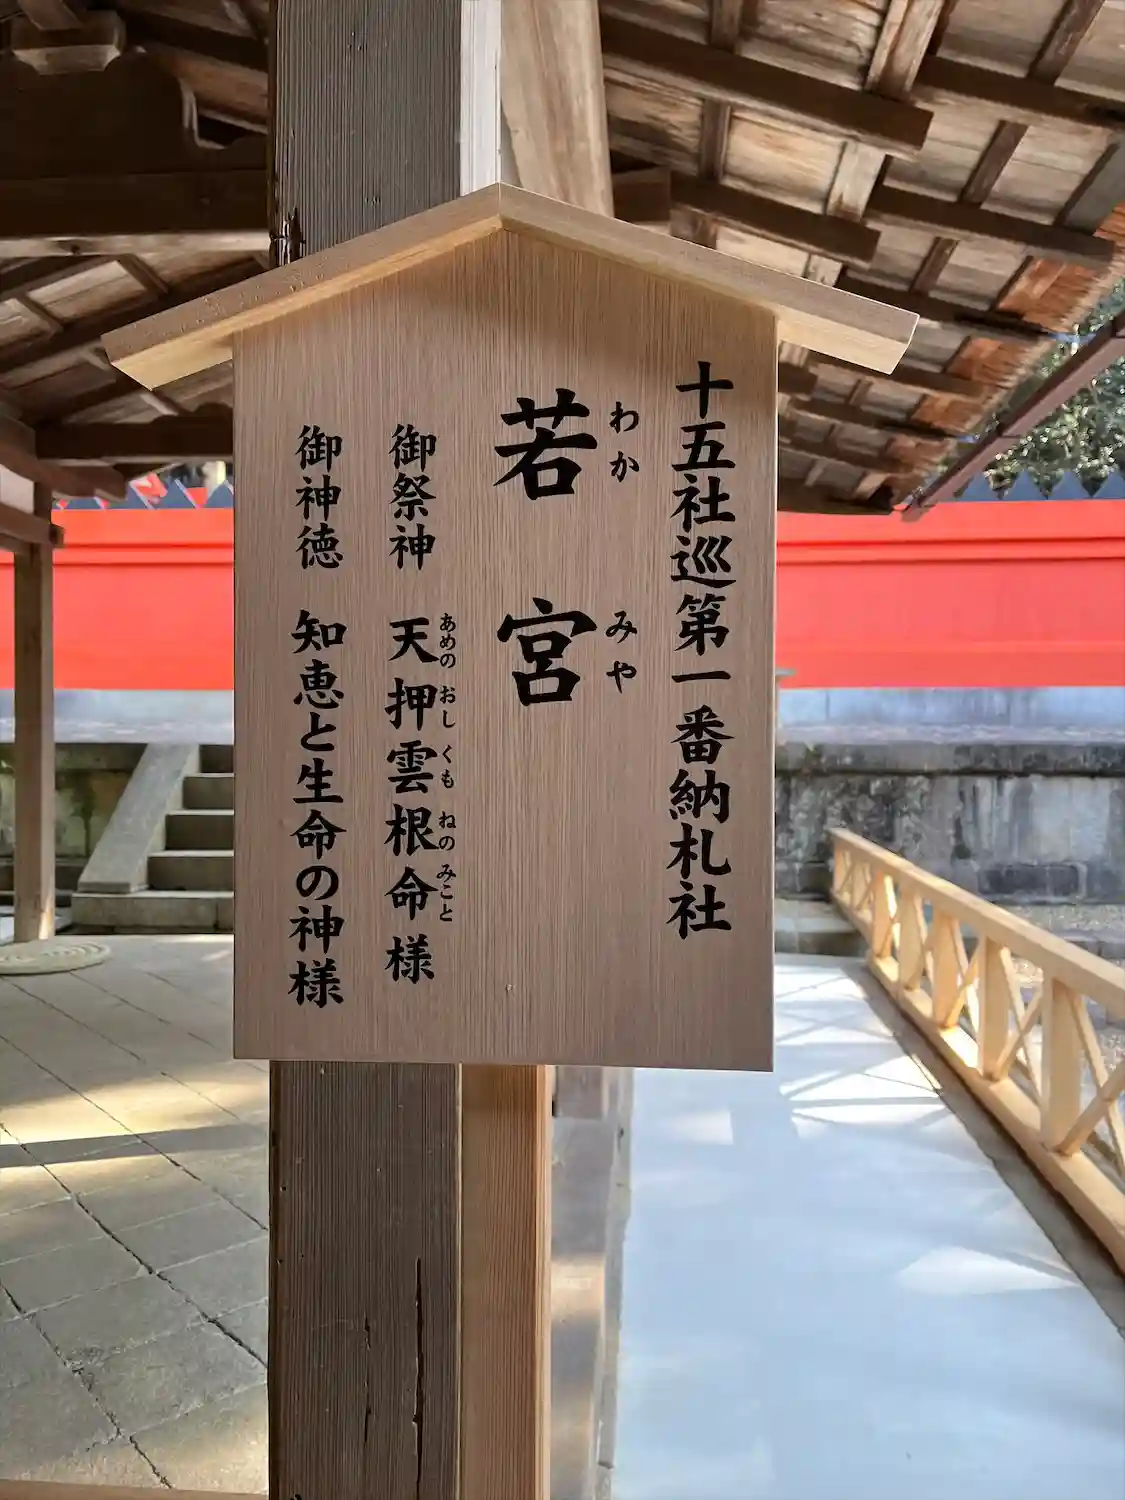 十五社巡第一番納札社
若宮
わかみや
御祭神 天押雲根命様
あめの おし くも ねの みこと
御神徳 知恵と生命の神様